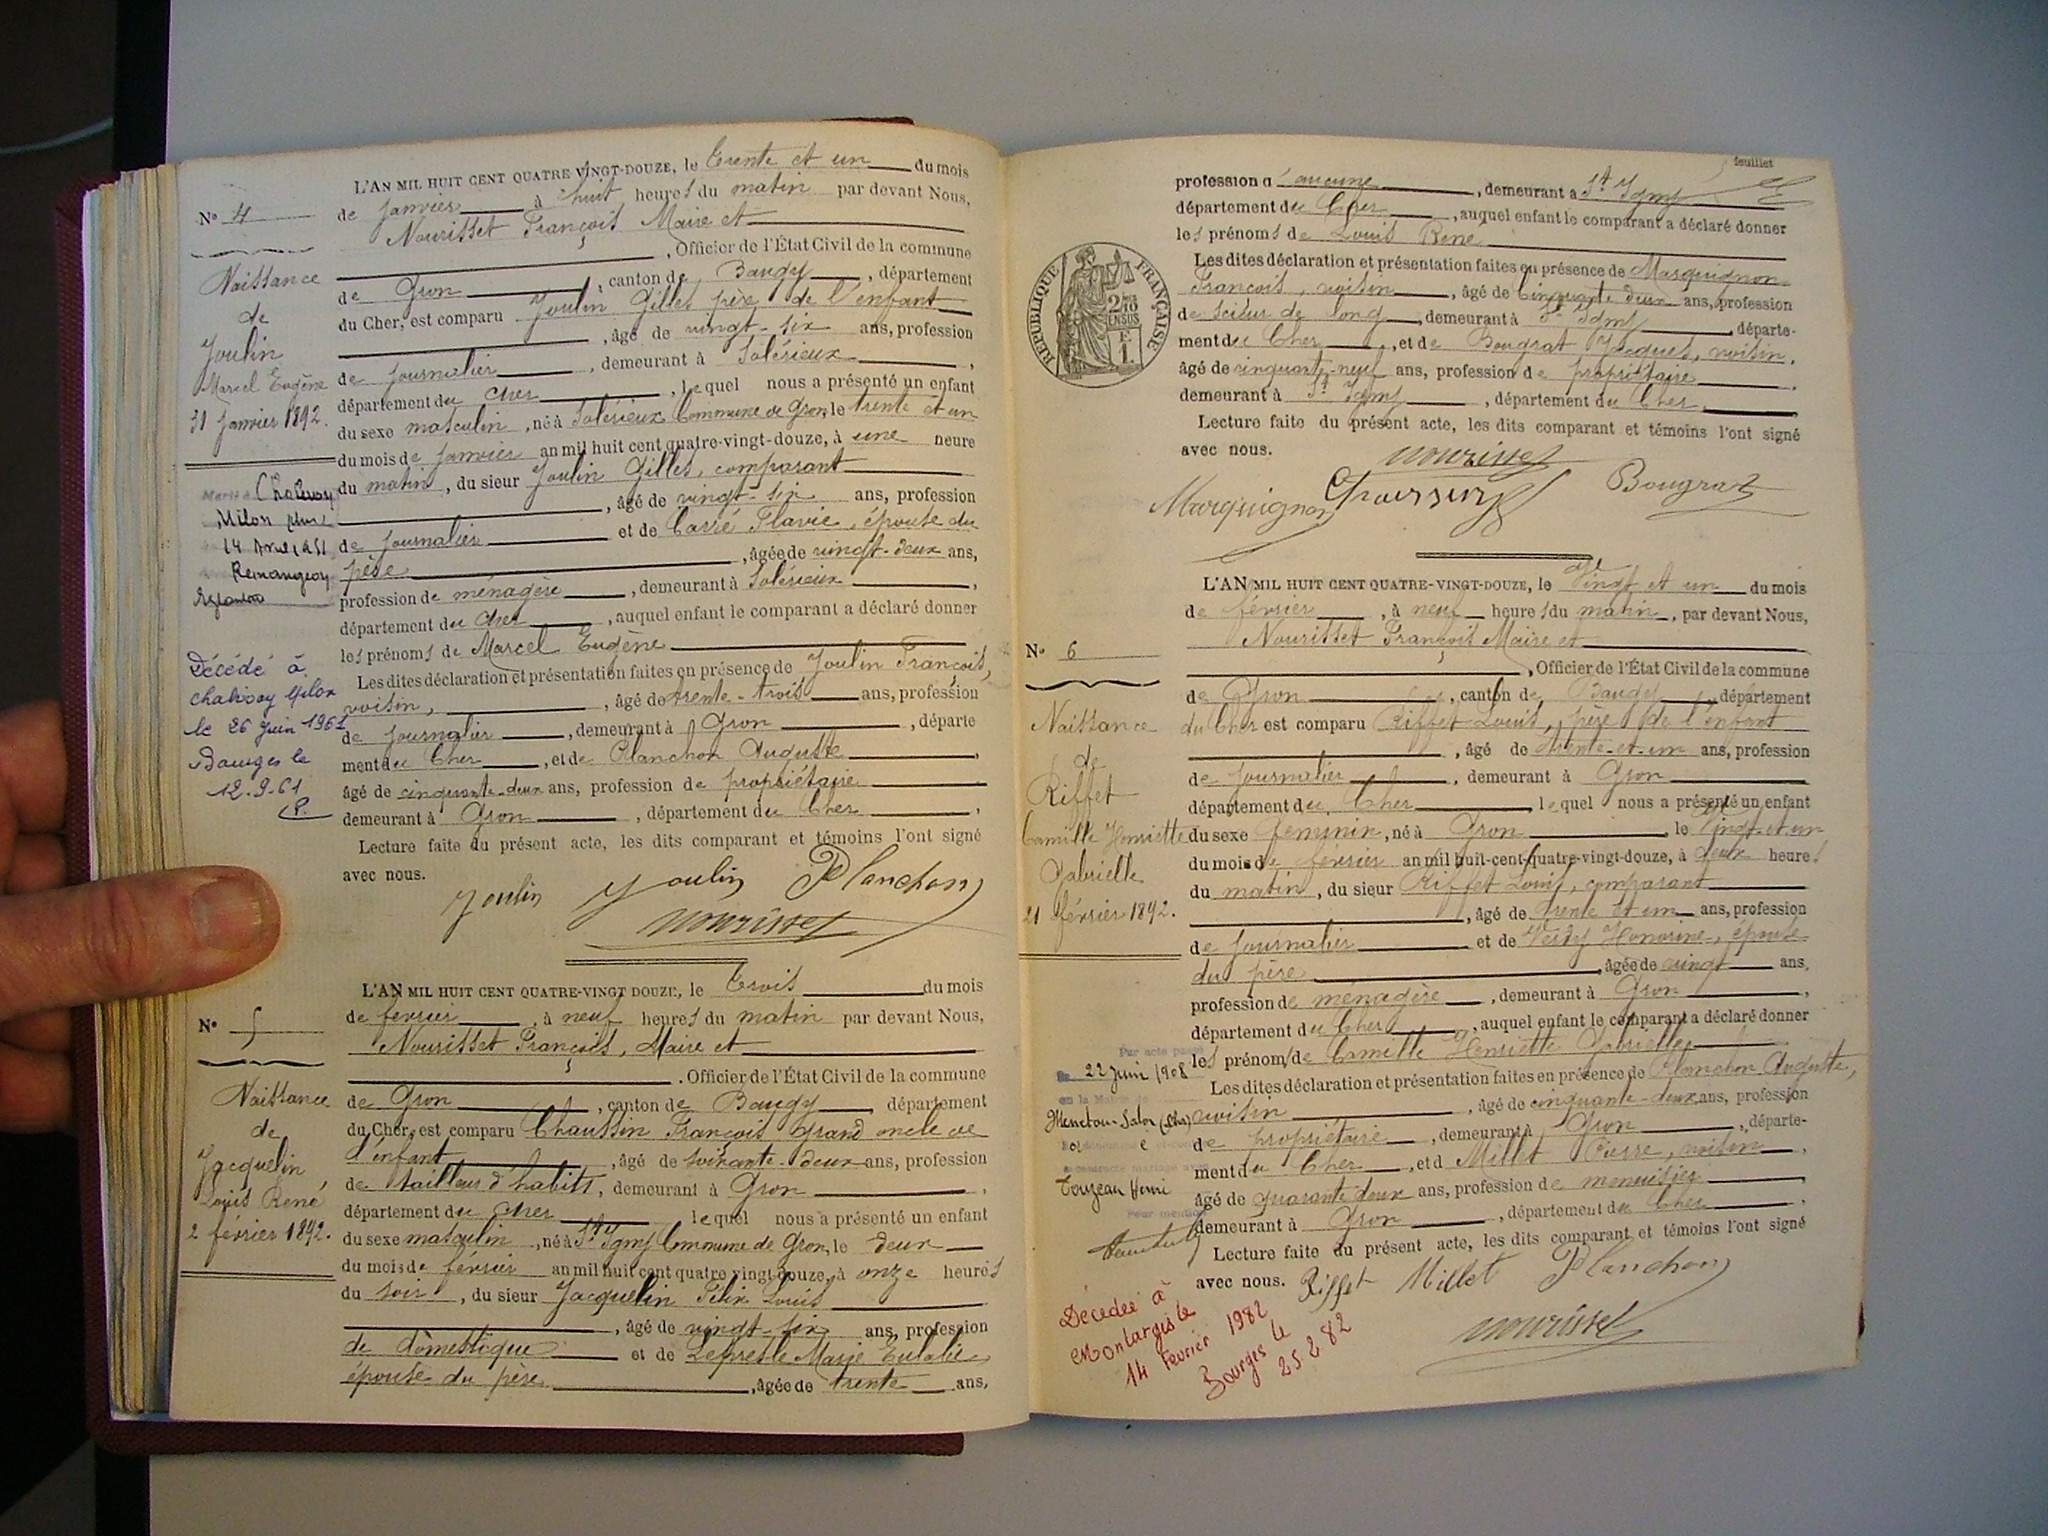 L'AN MIL HUIT CENT QUATRE-VINGT-DOUZE, le Trente et un du mois
de janvier à huit heures du matin par devant Nous,
Nourisset François Maire et
, Officier de l'État Civil de la commune
de Gron, canton de Baugy, département
du Cher, est comparu Joulin Gilles père de l'enfant
, âgé de vingt-six ans, profession
de journalier, demeurant à Solérieux,
département du Cher, lequel nous a présenté un enfant
du sexe masculin, né à Solérieux Commune de Gron, le trente et un
du mois de janvier an mil huit cent quatre-vingt-douze, à une heure
du matin, du sieur Joulin Gilles, comparant
, âgé de vingt-six ans, profession
de journalier et de Carré Flavie, épouse du
père, âgée de vingt-deux ans,
profession de ménagère, demeurant à Solérieux,
département du Cher, auquel enfant le comparant a déclaré donner
les prénoms de Marcel Eugène
Les dites déclaration et présentation faites en présence de Joulin François,
voisin, âgé de trente-trois ans, profession
de journalier, demeurant à Gron, départe
ment du Cher, et de Planchon Auguste,
âgé de cinquante-deux ans, profession de propriétaire
demeurant à Gron, département du Cher,
Lecture faite du présent acte, les dits comparant et témoins l'ont signé
avec nous.
Joulin Joulin Planchon
Nourisset
N° 4
Naissance
de
Joulin
Marcel Eugène
31 Janvier 1892.
Chalivoy
Milon
Décédé à
Chalivoy Milon
le 26 Juin 1961
Bourges le
12.9.61
L'AN MIL HUIT CENT QUATRE-VINGT DOUZE, le Trois du mois
de février, à neuf heures du matin par devant Nous,
Nourisset François, Maire et
. Officier de l'État Civil de la commune
de Gron, canton de Baugy, département
du Cher, est comparu Chaussin François grand oncle de
l'enfant, âgé de soixante-deux ans, profession
de tailleur d'habits, demeurant à Gron,
département du Cher lequel nous a présenté un enfant
du sexe masculin, né à St Igny Commune de Gron, le deux
du mois de février an mil huit cent quatre vingt-douze, à onze heures
du soir, du sieur Jacquelin Félix Louis
, âgé de vingt-six ans, profession
de domestique et de Lepresle Marie Eulalie,
épouse du père, âgée de trente ans,
N° 5
Naissance
de
Jacquelin
Louis René
2 février 1892.
feuillet
profession d'aucune, demeurant à St Igny
département du Cher, auquel enfant le comparant a déclaré donner
les prénoms de Louis René
Les dites déclaration et présentation faites en présence de Marquignon
François, voisin, âgé de cinquante deux ans, profession
de scieur de long, demeurant à St Igny, départe-
ment du Cher, et de Bougrat Jacques, voisin,
âgé de cinquante-neuf ans, profession de propriétaire,
demeurant à St Igny, département du Cher,
Lecture faite du présent acte, les dits comparant et témoins l'ont signé
avec nous.
Nourisset
Marquignon Chaussin Bougrat
RÉPUBLIQUE FRANÇAISE
L'AN MIL HUIT CENT QUATRE-VINGT-DOUZE, le Vingt et un du mois
de février, à neuf heures du matin, par devant Nous,
Nourisset François Maire et
, Officier de l'État Civil de la commune
de Gron, canton de Baugy, département
du Cher est comparu Riffet Louis, père de l'enfant
, âgé de trente-et-un ans, profession
de journalier, demeurant à Gron
département du Cher, lequel nous a présenté un enfant
du sexe féminin, né à Gron, le vingt-et-un
du mois de février an mil huit-cent-quatre-vingt-douze, à deux heures
du matin, du sieur Riffet Louis, comparant
, âgé de trente et un ans, profession
de journalier et de Verdy Honorine, épouse
du père, âgée de vingt ans,
profession de ménagère, demeurant à Gron,
département du Cher, auquel enfant le comparant a déclaré donner
les prénoms de Camille Henriette Gabrielle
Les dites déclaration et présentation faites en présence de Planchon Auguste,
voisin, âgé de cinquante-deux ans, profession
de propriétaire, demeurant à Gron, départe-
ment du Cher, et d Millet Pierre, voisin,
âgé de quarante deux ans, profession de menuisier
demeurant à Gron, département du Cher
Lecture faite du présent acte, les dits comparant et témoins l'ont signé
avec nous. Riffet Millet Planchon
Nourisset
N° 6
Naissance
de
Riffet
Camille Henriette
Gabrielle
21 février 1892.
Par acte passé
22 Juin 1908
en la Mairie de
Menetou-Salon (Cher)
Touzeau Henri
Pour mention
Décédée à
Montargis le
14 Février 1982
Bourges le
25 2 82